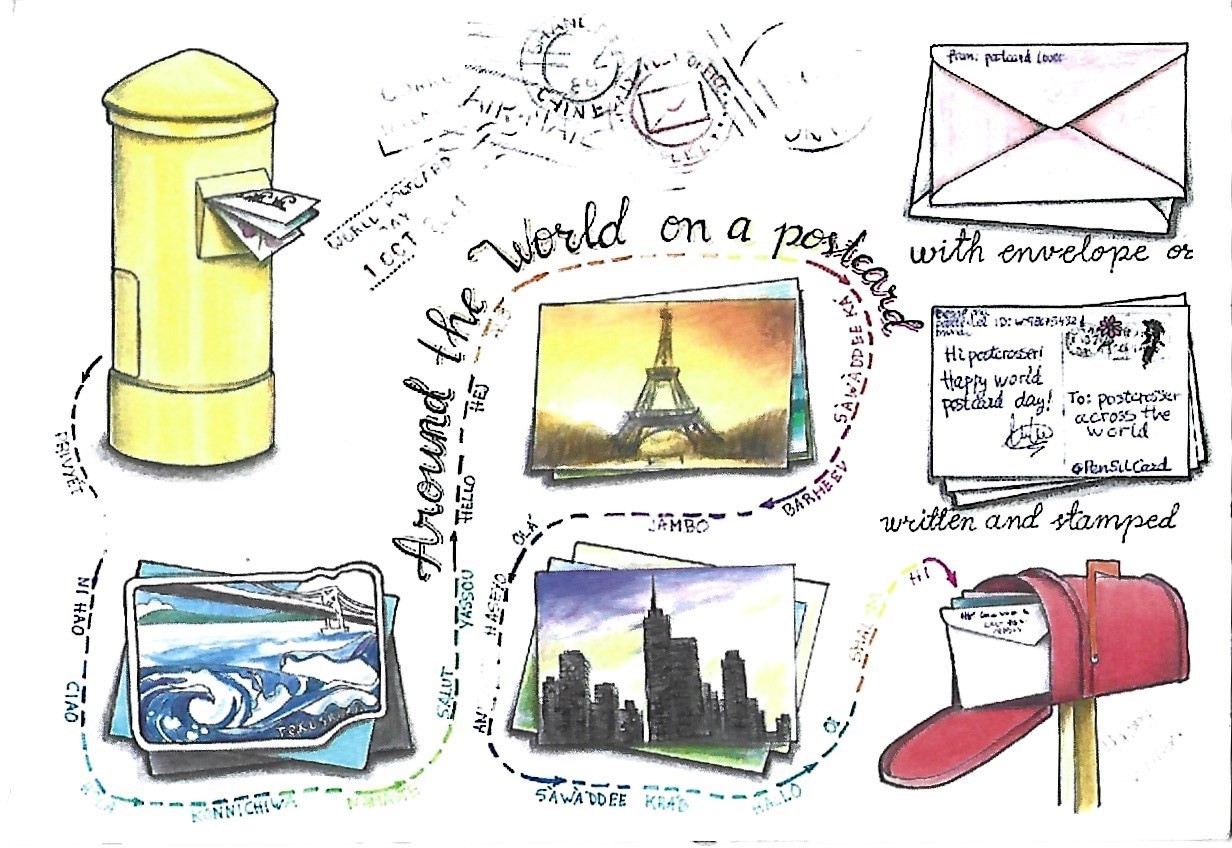 AIR MAIL
WORLD POSTCARD
DAY
1 OCT
Around the World on a postcard
From: postcard lover
with envelope or
Hi postcrosser!
Happy world
postcard day!
To: postcrosser
across the
world
@PenSilCard
written and stamped
PRIVYET
NI HAO
CIAO
KONNICHIWA
SALUT
YASSOU
HELLO
HEJ
SAWADDEE KA
BARHEEV
JAMBO
OLA'
HASEYO
SAWADDEE KRAB
HALLO
OI
SHALOM
HI